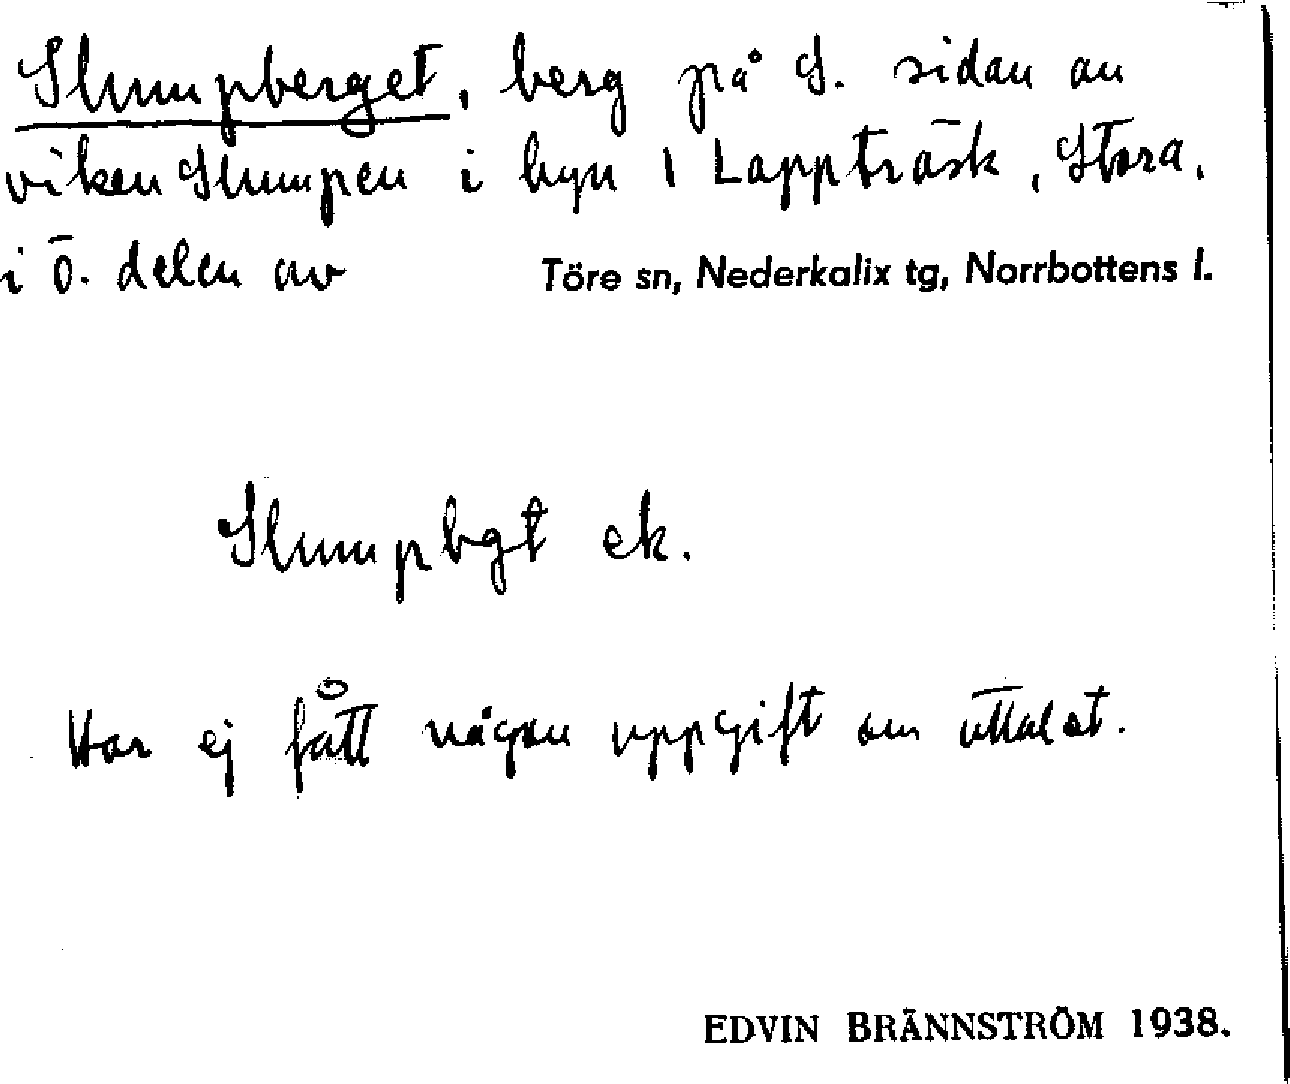 Slumpberget, berg på S. sidan av
viken Slumpen i byn 1 Lappträsk, Stora,
i ö. delen av Töre sn, Nederkalix tg, Norrbottens l.
Slumpbgt ek.
Har ej fått någon uppgift om uttalet.
EDVIN BRÄNNSTRÖM 1938.